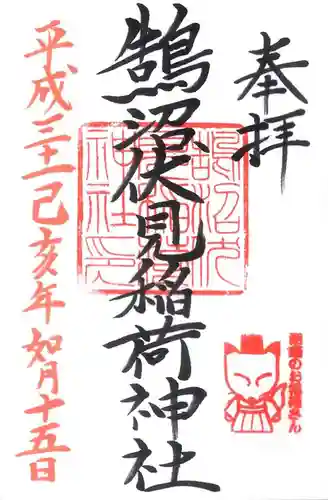 奉拝
鵠沼伏見稲荷神社
平成三十一己亥年如月十五日